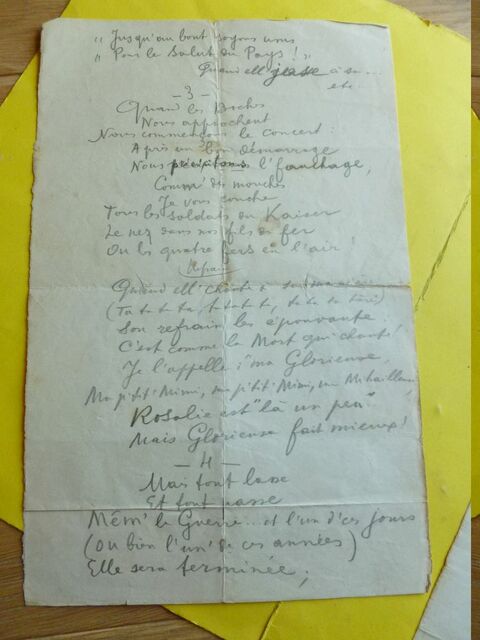 „ Jusqu'au bout soyons unis
„ Pour le Salut du Pays ! „
Quand ell' jase à sa...
etc
— 3 —
Quand les Boches
Nous approchent
Nous commençons le concert :
Après un bon démarrage
Nous précipitons l'fauchage,
Comm' des mouches
Je vous couche
Tous les soldats du Kaiser
Le nez dans nos fils de fer
Ou les quatre fers en l'air !
Refrain
Quand ell' chante à sa manière
(Ta ta ta, ta ta ta, ta ta ta tère)
Son refrain les épouvante
C'est comme la Mort qui chante !
Je l'appelle "ma Glorieuse,
Ma p'tit' Mimi, ma p'tit' Mimi, ma Mitrailleuse
Rosalie est "là un peu"
Mais Glorieuse fait mieux !
— 4 —
Mais tout lasse
Et tout passe
Mêm' la Guerre... et l'un d'ces jours
(Ou bien l'un' de ces années)
Elle sera terminée,